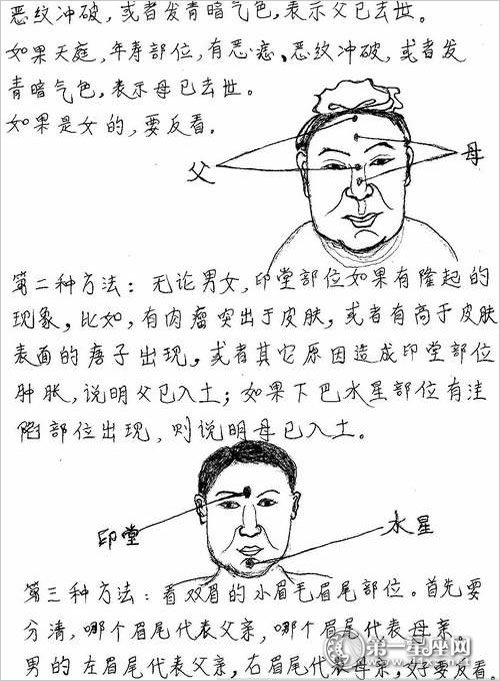 恶纹冲破，或者发青暗气色，表示父已去世。
如果天庭，年寿部位，有恶痣、恶纹冲破，或者发
青暗气色，表示母已去世。
如果是女的，要反看。
父
母
第二种方法：无论男女，印堂部位如果有隆起的
现象，比如，有肉瘤突出于皮肤，或者有高于皮肤
表面的痦子出现，或者其它原因造成印堂部位
肿胀，说明父已入土；如果下巴水星部位有洼
陷部位出现，则说明母已入土。
印堂
水星
第三种方法：看双眉的小眉毛眉尾部位。首先要
分清，哪个眉尾代表父亲，哪个眉尾代表母亲。
男的左眉尾代表父亲，右眉尾代表母亲，女子要反看。
第一星座网